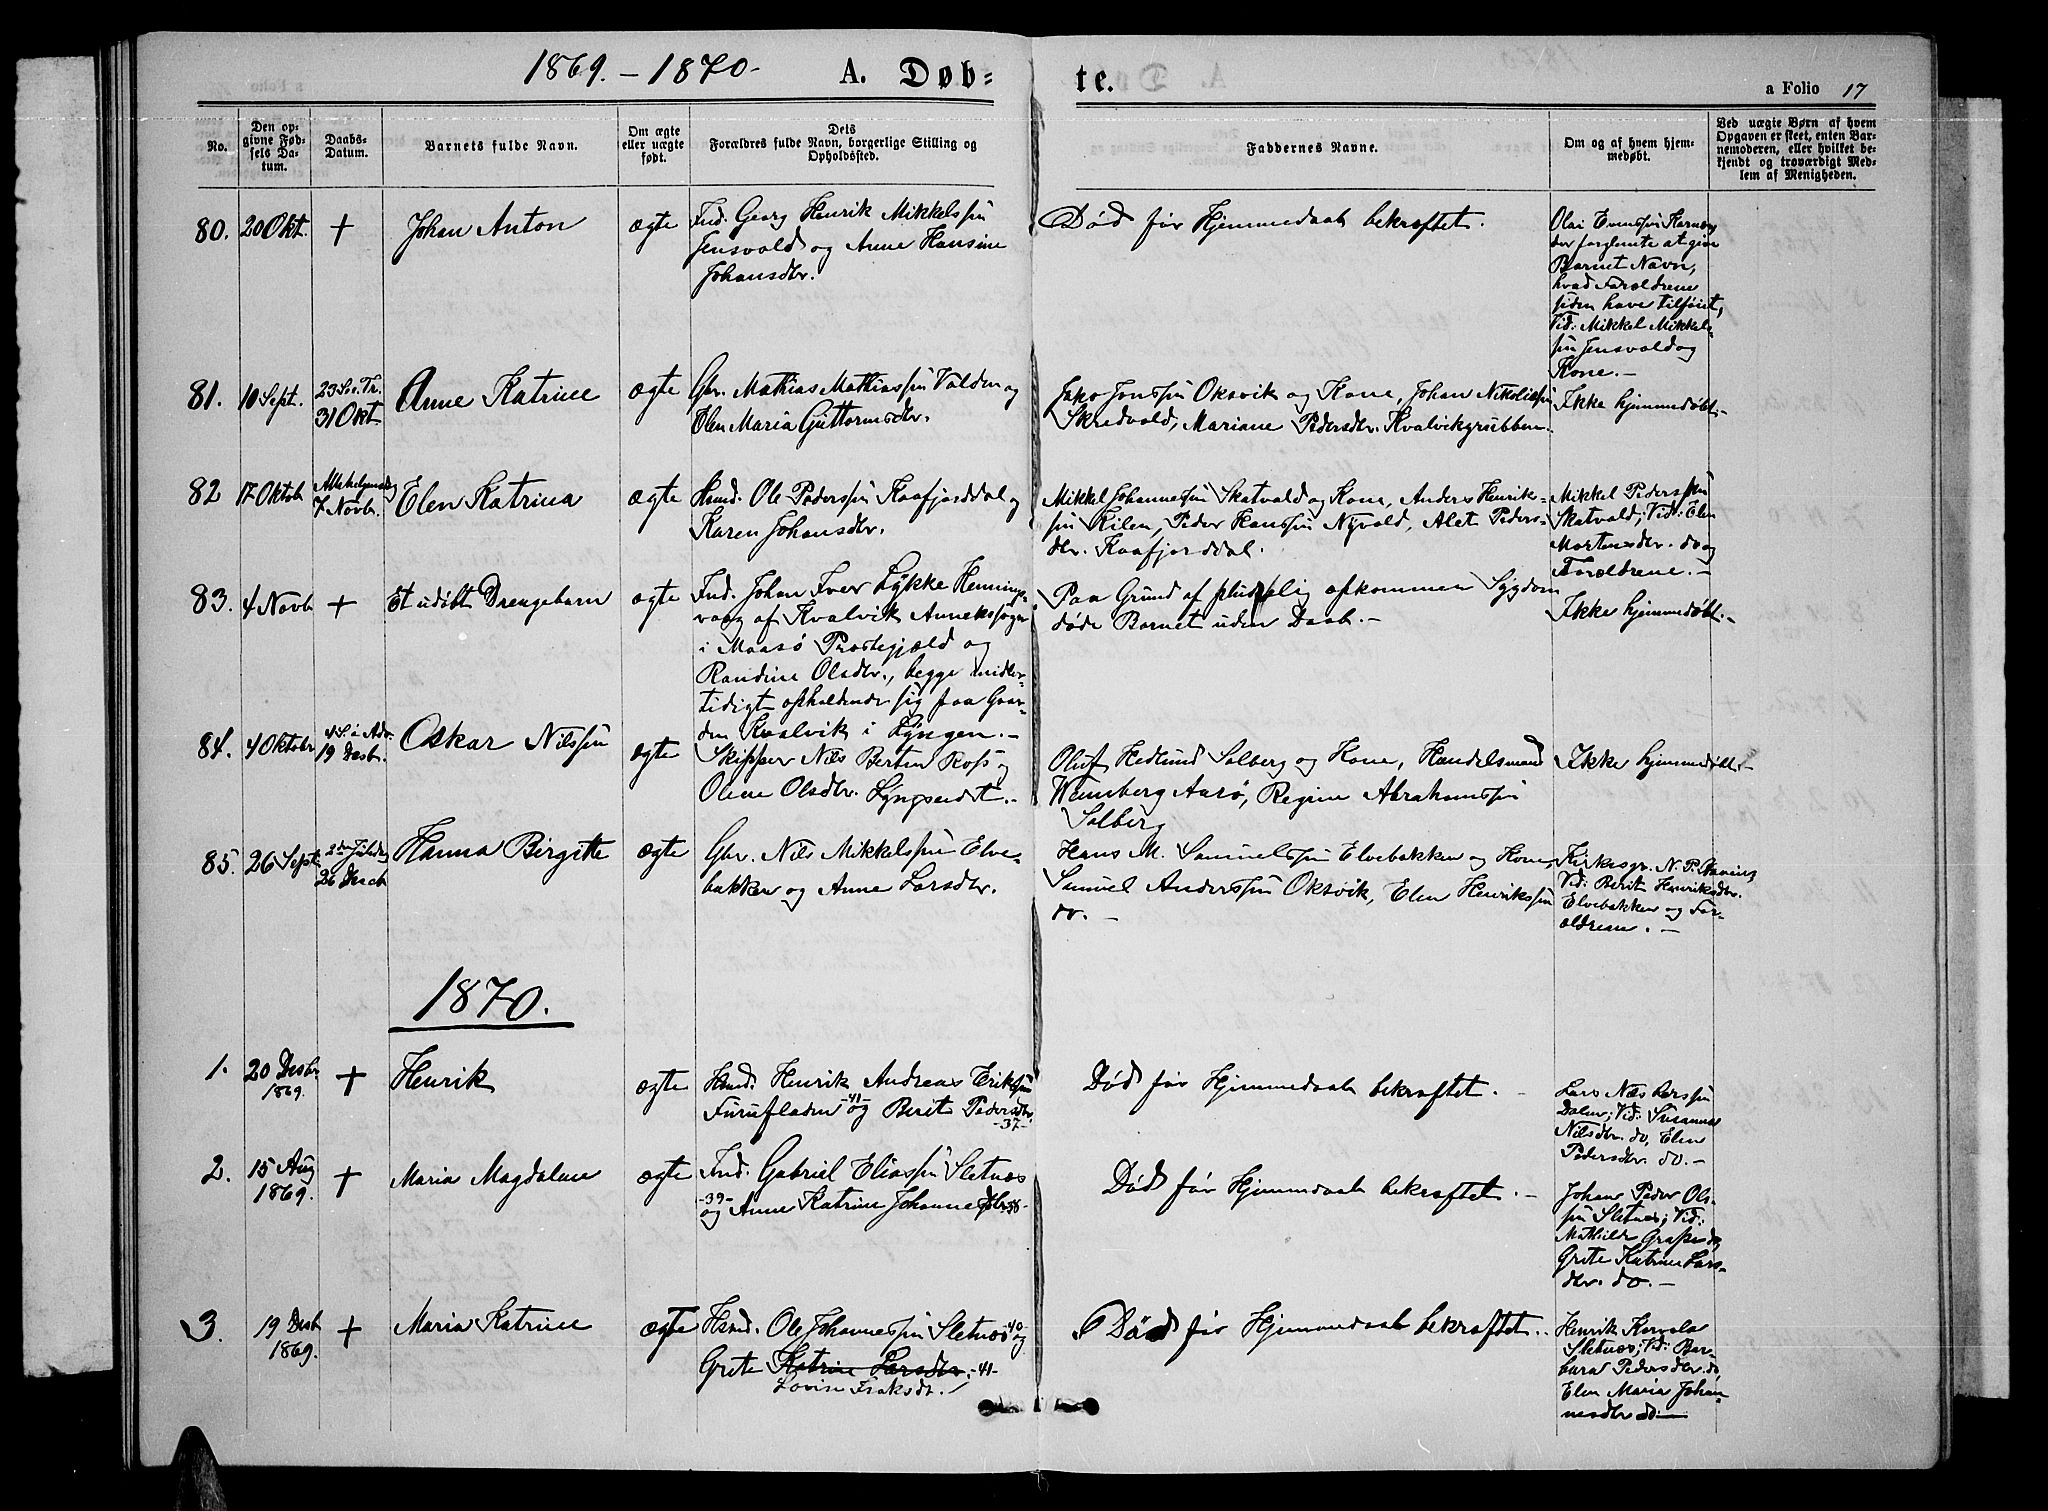 1869. - 1870.
A. Døb=
te.
a Folio 17
No.
Den op-
givne Fød-
sels Da-
tum.
Daabs-
Datum.
Barnets fulde Navn.
Om ægte
eller uægte
født.
Dels
Forældres fulde Navn, borgerlige Stilling og
Opholdssted.
Faddernes Navne.
Om og af hvem hjem-
medøbt.
Ved uægte Børn af hvem
Opgaven er skeet, enten Bar-
nemoderen, eller hvilket be-
kjendt og troværdigt Med-
lem af Menigheden.
80. 20 Okt. + Johan Anton ægte
Ind. Georg Henrik Mikkelssøn
Jensvold og Anne Hansine
Johansdtr.
Død før Hjemmedaab bekræftet.
Olai Evenssøn
der forglemte at give
Barnet Navn,
hvad Forældrene
siden have tilføiet,
Vid: Mikkel Mikkels-
søn Jensvold og
Kone. -
81. 10 Sept. 23 S. e. Tr.
31 Okt
Anne Katrine ægte
Gbr. Mathias Mathiassøn Valden og
Olen Maria Guttormsdtr.
Jonssøn Oksvik og Kone, Johan Nikolaissøn
Skredvold, Mariane Pedersdtr. Kvalvikgrubben.
Ikke hjemmedøbt.
82 17 Oktob
7 Novb.
Elen Katrina ægte
Hsmd. Ole Pederssøn Kaafjorddal og
Karen Johansdtr.
Mikkel Johannessøn Skatvold og Kone, Anders Henriks-
søn Kilen, Peder Hanssøn Nyvold, Alet Peders-
dtr. Kaafjorddal.
Mikkel Pederssøn
Skatvold; Vid: Elen
Mortensdtr. do og
Forældrene. -
83. 4 Novb + Et udøbt Drengebarn ægte
Ind. Johan Iver Lykke Hennings-
vaag af Kvalvik Annekssogn
i Maasø Præstegjæld og
Randine Olsdtr., begge midler-
tidigt opholdende sig paa Gaar-
den Kvalvik i Lyngen. -
Paa Grund af pludselig opkommen Sygdom
døde Barnet uden Daab. -
Ikke hjemmedøbt. -
84. 4 Oktobr 4 S. i Adv.
19 Desb.
Oskar Nilssøn ægte
Skipper Nils Bertin Ross og
Olene Olsdtr. Lyngseidet. -
Oluf Hedlund Solberg og Kone, Handelsmand
Wennberg Aarø, Regine Abrahamssøn
Solberg
Ikke hjemmedøbt. -
85. 26 Sept. 2den Juledag
26 Desb
Hanna Birgitte ægte
Gbr. Nils Mikkelssøn Elve-
bakken og Anne Larsdtr.
Hans M. Samuelssøn Elvebakken og Kone,
Samuel Anderssøn Oksvik, Elen Henrikssøn
do. -
Kirkesgr. N. P.
Vid: Berit Henriksdtr.
Elvebakken og For-
ældrene. -
1870.
1. 20 Desbr.
1869.
+ Henrik ægte
Hsmd. Henrik Andreas Erikssøn
Furuflaten -41- og Berit Pedersdtr.
-37-
Død før Hjemmedaab bekræftet. -
Lars Nils Larssøn
Dalen; Vid: Susanna
Nilsdtr. do, Elen
Pedersdtr. do. -
2. 15 Aug
1869.
+ Maria Magdalene ægte
Ind. Gabriel Eliassøn Sletnæs
-39-
og Anne Katrine Johannesdtr. -38-
Død før Hjemmedaab bekræftet. -
Johan Peder Ols-
søn Sletnæs; Vid:
Mathilde Grape do,
Grete Katrine Lars-
dtr. do. -
3. 19 Desb
1869.
+ Maria Katrine ægte
Hsmd. Ole Johannessøn Sletnæs -40- og
Grete Katrine Larsdtr. -41-
Lovise Isaksdt.
Død før Hjemmedaab bekræftet.
Henrik Kervela
Sletnæs; Vid: Bar-
bara Pedersdtr. do,
Elen Maria Johan-
nesdtr do -